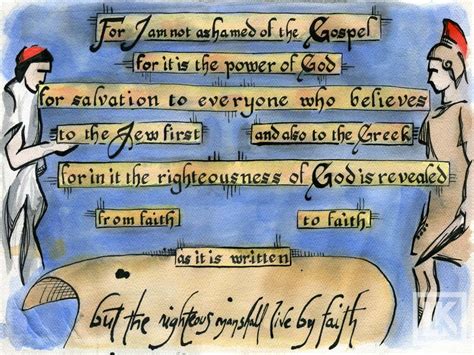 For I am not ashamed of the Gospel
for it is the power of God
for salvation to everyone who believes
to the Jew first and also to the Greek
for in it the righteousness of God is revealed
from faith to faith
as it is written
but the righteous man shall live by faith